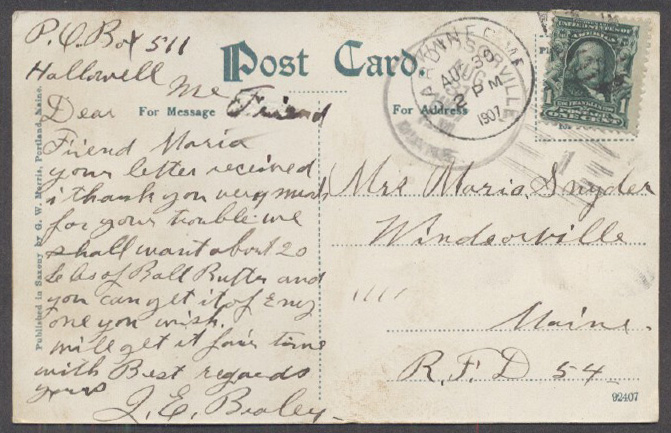 P.O. Box 511
Hallowell
Me
Post Card.
For Message
For Address
Dear Friend
Friend Maria
your letter received
i thank you very much
for your trouble we
shall want about 20
of Ball Butter and
you can get it of Eny
one you wish.
will get it fair time
with Best regards
yours
J.E.
Mrs Maria Snyder
Windsorville
Maine.
R.F.D 54
WINDSORVILLE
AUG
30
2 PM
1907
MAINE
UNITED STATES OF
AMERICA
1
ONE CENT
1
Published in Saxony by G. W. Morris, Portland, Maine.
92407